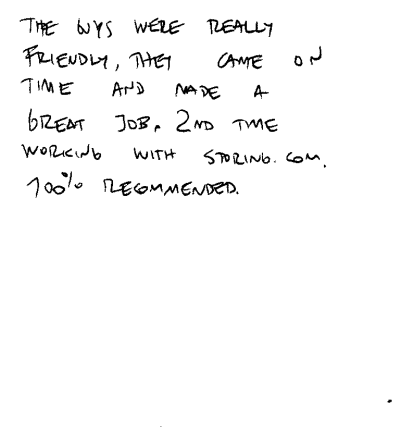 THE GUYS WERE REALLY
FRIENDLY, THEY CAME ON
TIME AND MADE A
GREAT JOB. 2ND TIME
WORKING WITH STORING.COM.
100% RECOMMENDED.